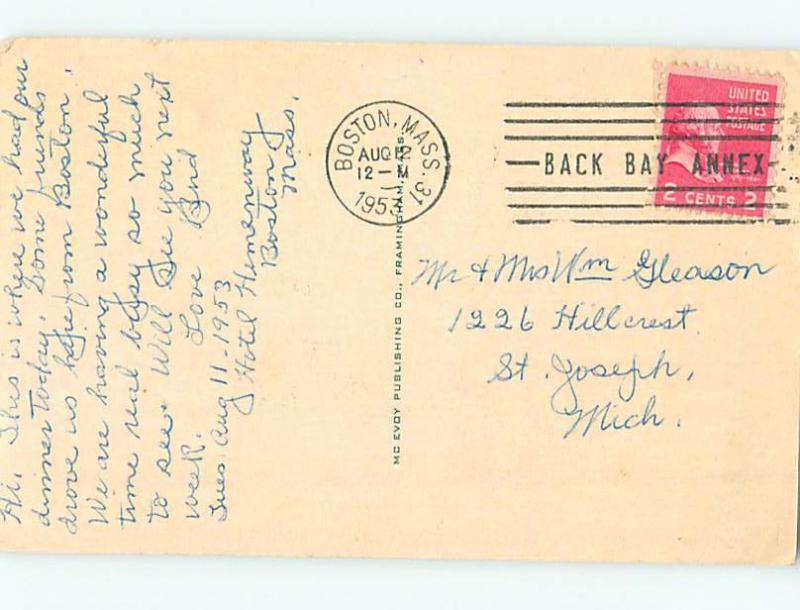 Hi, This is where we had our
dinner today. Some friends
drove us here from Boston.
We are having a wonderful
time real busy so much
to see. Will See you next
week. Love Bud
Tues. Aug 11-1953
Hotel Hemenway
Boston
Mass.
MC EVOY PUBLISHING CO., FRAMINGHAM, MASS.
BOSTON, MASS. 31
AUG 12
12 - M
1953
BACK BAY ANNEX
UNITED
STATES
POSTAGE
2 CENTS 2
Mr & Mrs Wm Gleason
1226 Hillcrest
St. Joseph,
Mich.